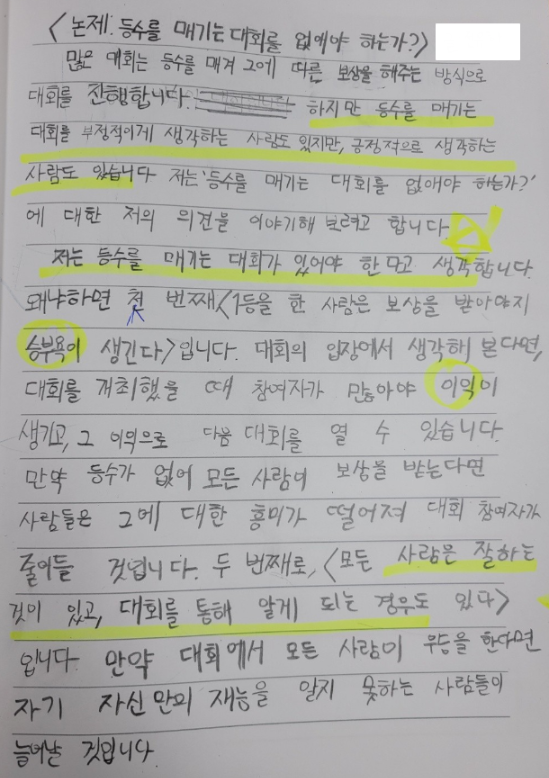 <논제: 등수를 매기는 대회를 없애야 하는가?>
많은 대회는 등수를 매겨 그에 따른 보상을 해주는 방식으로
대회를 진행합니다. 하지만 등수를 매기는
대회를 부정적이게 생각하는 사람도 있지만, 긍정적으로 생각하는
사람도 있습니다 저는 '등수를 매기는 대회를 없애야 하는가?'
에 대한 저의 의견을 이야기해 보려고 합니다.
저는 등수를 매기는 대회가 있어야 한다고 생각합니다.
왜냐하면 첫 번째 <1등을 한 사람은 보상을 받아야지
승부욕이 생긴다> 입니다. 대회의 입장에서 생각해 본다면,
대회를 개최했을 때 참여자가 많아야 이익이
생기고, 그 이익으로 다음 대회를 열 수 있습니다.
만약 등수가 없어 모든 사람이 보상을 받는다면
사람들은 그에 대한 흥미가 떨어져 대회 참여자가
줄어들 것입니다. 두 번째로, <모든 사람은 잘하는
것이 있고, 대회를 통해 알게 되는 경우도 있다>
입니다. 만약 대회에서 모든 사람이 우등을 한다면
자기 자신만의 재능을 알지 못하는 사람들이
늘어날 것입니다.